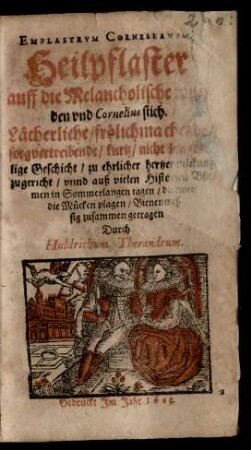 EMPLASTRVM CORNELIANVM.
Heilpflaster
auff die Melancholische
den vnd Cornelius stich.
Lächerliche/ frölichmachende/
sorgvertreibende/ kurtz/ nicht
lige Geschicht/ zu ehrlicher
zugericht/ vnnd auß vielen Historien
men in Sommerlangen tagen/
die Mücken plagen/ Bienen
sig zusammen getragen
Durch
Huldrichum Therandrum.
Gedruckt Im Jahr